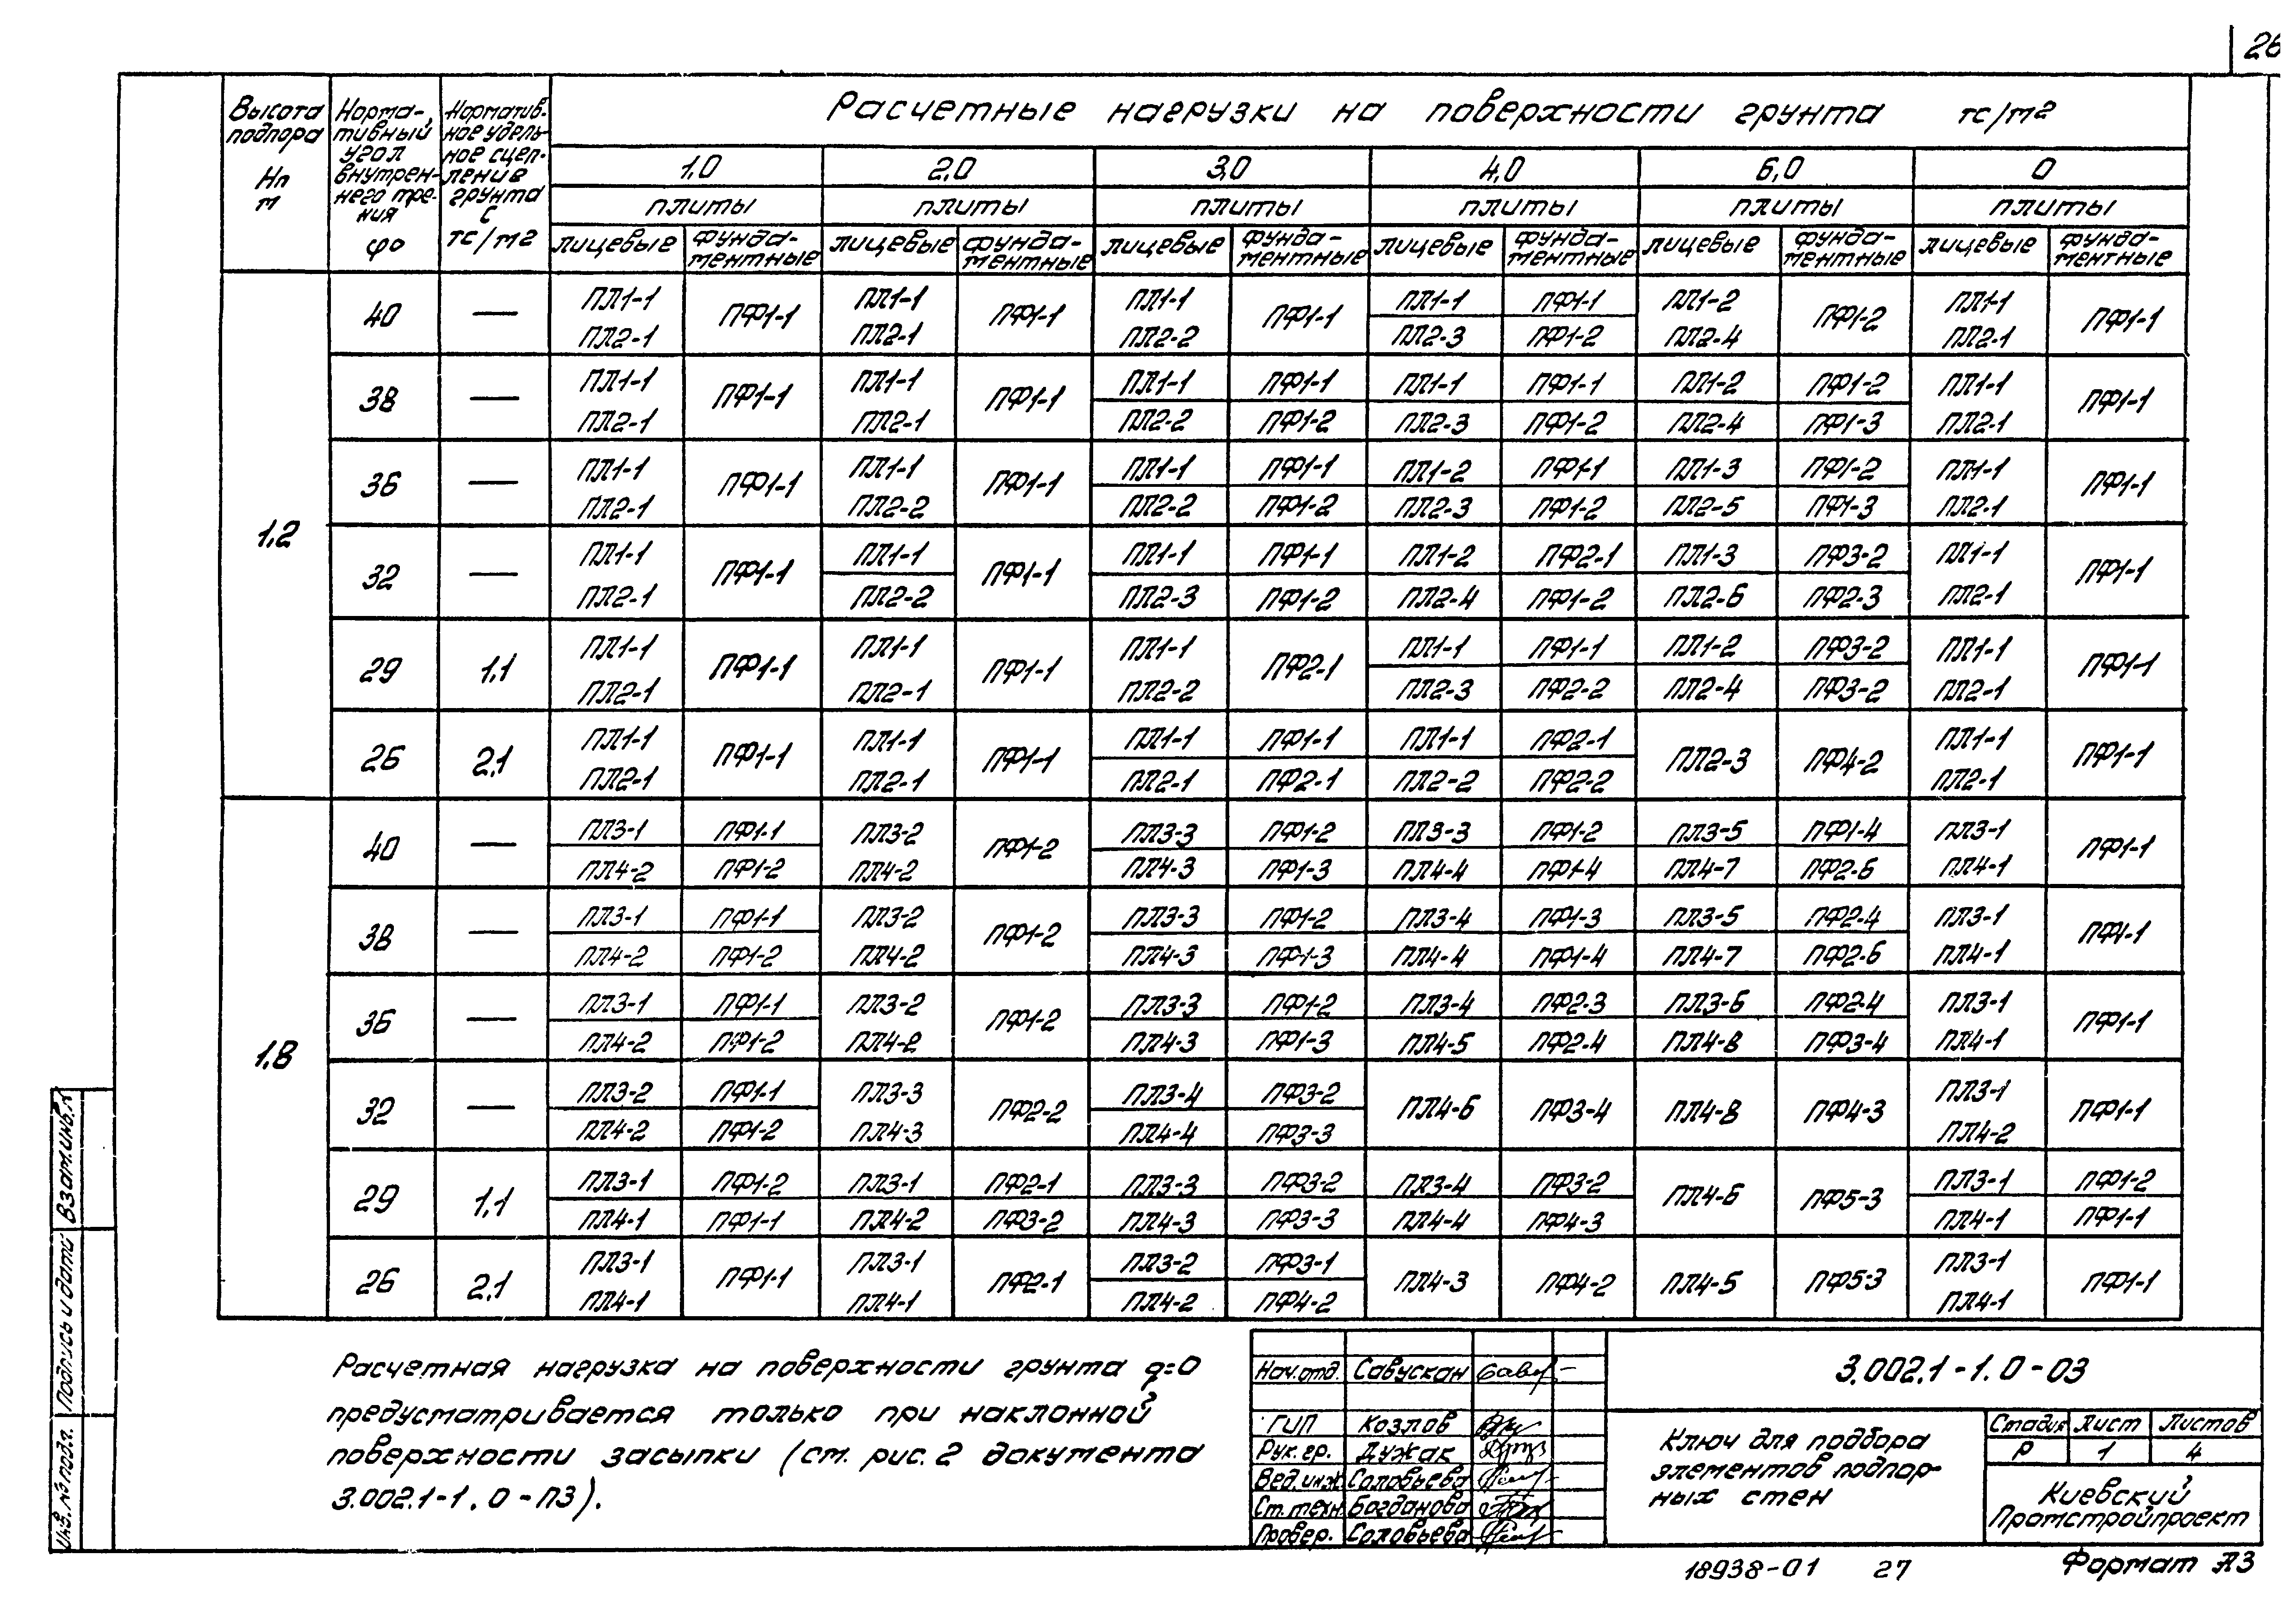 26
Высота подпора Нп м
Норматив-ный угол внутрен-него тре-ния φ°
Норматив-ное удель-ное сцеп-ление грунта С тс/м2
Расчетные нагрузки на поверхности грунта тс/м2
1,0 2,0 3,0 4,0 6,0 0
плиты плиты плиты плиты плиты плиты
лицевые фунда-ментные лицевые фунда-ментные лицевые фунда-ментные лицевые фунда-ментные лицевые фунда-ментные лицевые фунда-ментные
1,2
40 — ПЛ1-1 ПФ1-1 ПЛ1-1 ПФ1-1 ПЛ1-1 ПФ1-1 ПЛ1-1 ПФ1-1 ПЛ1-2 ПФ1-2 ПЛ1-1 ПФ1-1
ПЛ2-1 ПЛ2-1 ПЛ2-2 ПЛ2-3 ПФ1-2 ПЛ2-4 ПЛ2-1
38 — ПЛ1-1 ПФ1-1 ПЛ1-1 ПФ1-1 ПЛ1-1 ПФ1-1 ПЛ1-1 ПФ1-1 ПЛ1-2 ПФ1-2 ПЛ1-1 ПФ1-1
ПЛ2-1 ПЛ2-1 ПЛ2-2 ПФ1-2 ПЛ2-3 ПФ1-2 ПЛ2-4 ПФ1-3 ПЛ2-1
36 — ПЛ1-1 ПФ1-1 ПЛ1-1 ПФ1-1 ПЛ1-1 ПФ1-1 ПЛ1-2 ПФ1-1 ПЛ1-3 ПФ1-2 ПЛ1-1 ПФ1-1
ПЛ2-1 ПЛ2-2 ПЛ2-2 ПФ1-2 ПЛ2-3 ПФ1-2 ПЛ2-5 ПФ1-3 ПЛ2-1
32 — ПЛ1-1 ПФ1-1 ПЛ1-1 ПФ1-1 ПЛ1-1 ПФ1-1 ПЛ1-2 ПФ2-1 ПЛ1-3 ПФ3-2 ПЛ1-1 ПФ1-1
ПЛ2-1 ПЛ2-2 ПЛ2-3 ПФ1-2 ПЛ2-4 ПФ1-2 ПЛ2-6 ПФ2-3 ПЛ2-1
29 1,1 ПЛ1-1 ПФ1-1 ПЛ1-1 ПФ1-1 ПЛ1-1 ПФ2-1 ПЛ1-1 ПФ1-1 ПЛ1-2 ПФ3-2 ПЛ1-1 ПФ1-1
ПЛ2-1 ПЛ2-1 ПЛ2-2 ПЛ2-3 ПФ2-2 ПЛ2-4 ПФ3-2 ПЛ2-1
26 2,1 ПЛ1-1 ПФ1-1 ПЛ1-1 ПФ1-1 ПЛ1-1 ПФ1-1 ПЛ1-1 ПФ2-1 ПЛ2-3 ПФ4-2 ПЛ1-1 ПФ1-1
ПЛ2-1 ПЛ2-1 ПЛ2-1 ПФ2-1 ПЛ2-2 ПФ2-2 ПЛ2-1
1,8
40 — ПЛ3-1 ПФ1-1 ПЛ3-2 ПФ1-2 ПЛ3-3 ПФ1-2 ПЛ3-3 ПФ1-2 ПЛ3-5 ПФ1-4 ПЛ3-1 ПФ1-1
ПЛ4-2 ПФ1-2 ПЛ4-2 ПЛ4-3 ПФ1-3 ПЛ4-4 ПФ1-4 ПЛ4-7 ПФ2-6 ПЛ4-1
38 — ПЛ3-1 ПФ1-1 ПЛ3-2 ПФ1-2 ПЛ3-3 ПФ1-2 ПЛ3-4 ПФ1-3 ПЛ3-5 ПФ2-4 ПЛ3-1 ПФ1-1
ПЛ4-2 ПФ1-2 ПЛ4-2 ПЛ4-3 ПФ1-3 ПЛ4-4 ПФ1-4 ПЛ4-7 ПФ2-6 ПЛ4-1
36 — ПЛ3-1 ПФ1-1 ПЛ3-2 ПФ1-2 ПЛ3-3 ПФ1-2 ПЛ3-4 ПФ2-3 ПЛ3-6 ПФ2-4 ПЛ3-1 ПФ1-1
ПЛ4-2 ПФ1-2 ПЛ4-2 ПЛ4-3 ПФ1-3 ПЛ4-5 ПФ2-4 ПЛ4-8 ПФ3-4 ПЛ4-1
32 — ПЛ3-2 ПФ1-1 ПЛ3-3 ПФ2-2 ПЛ3-4 ПФ3-2 ПЛ4-6 ПФ3-4 ПЛ4-8 ПФ4-3 ПЛ3-1 ПФ1-1
ПЛ4-2 ПФ1-2 ПЛ4-3 ПЛ4-4 ПФ3-3 ПЛ4-2
29 1,1 ПЛ3-1 ПФ1-2 ПЛ3-1 ПФ2-1 ПЛ3-3 ПФ3-2 ПЛ3-4 ПФ3-2 ПЛ4-6 ПФ5-3 ПЛ3-1 ПФ1-2
ПЛ4-1 ПФ1-1 ПЛ4-2 ПФ3-2 ПЛ4-3 ПФ3-3 ПЛ4-4 ПФ4-3 ПЛ4-1 ПФ1-1
26 2,1 ПЛ3-1 ПФ1-1 ПЛ3-1 ПФ2-1 ПЛ3-2 ПФ3-1 ПЛ4-3 ПФ4-2 ПЛ4-5 ПФ5-3 ПЛ3-1 ПФ1-1
ПЛ4-1 ПЛ4-1 ПЛ4-2 ПФ4-2 ПЛ4-1
Расчетная нагрузка на поверхности грунта q=0
предусматривается только при наклонной
поверхности засыпки (ст. рис. 2 документа
3.002.1-1.0-ПЗ).
Нач.отд. Савускан
ГИП Козлов
Рук.гр. Дужак
Вед.инж. Соловьева
Ст.техн. Богданова
Провер. Соловьева
3.002.1-1.0-03
Ключ для подбора
элементов подпор-
ных стен
Стадия Лист Листов
Р 1 4
Киевский
Промстройпроект
Инв.№ подл. Подпись и дата Взам.инв.№
18938-01 27 Формат А3